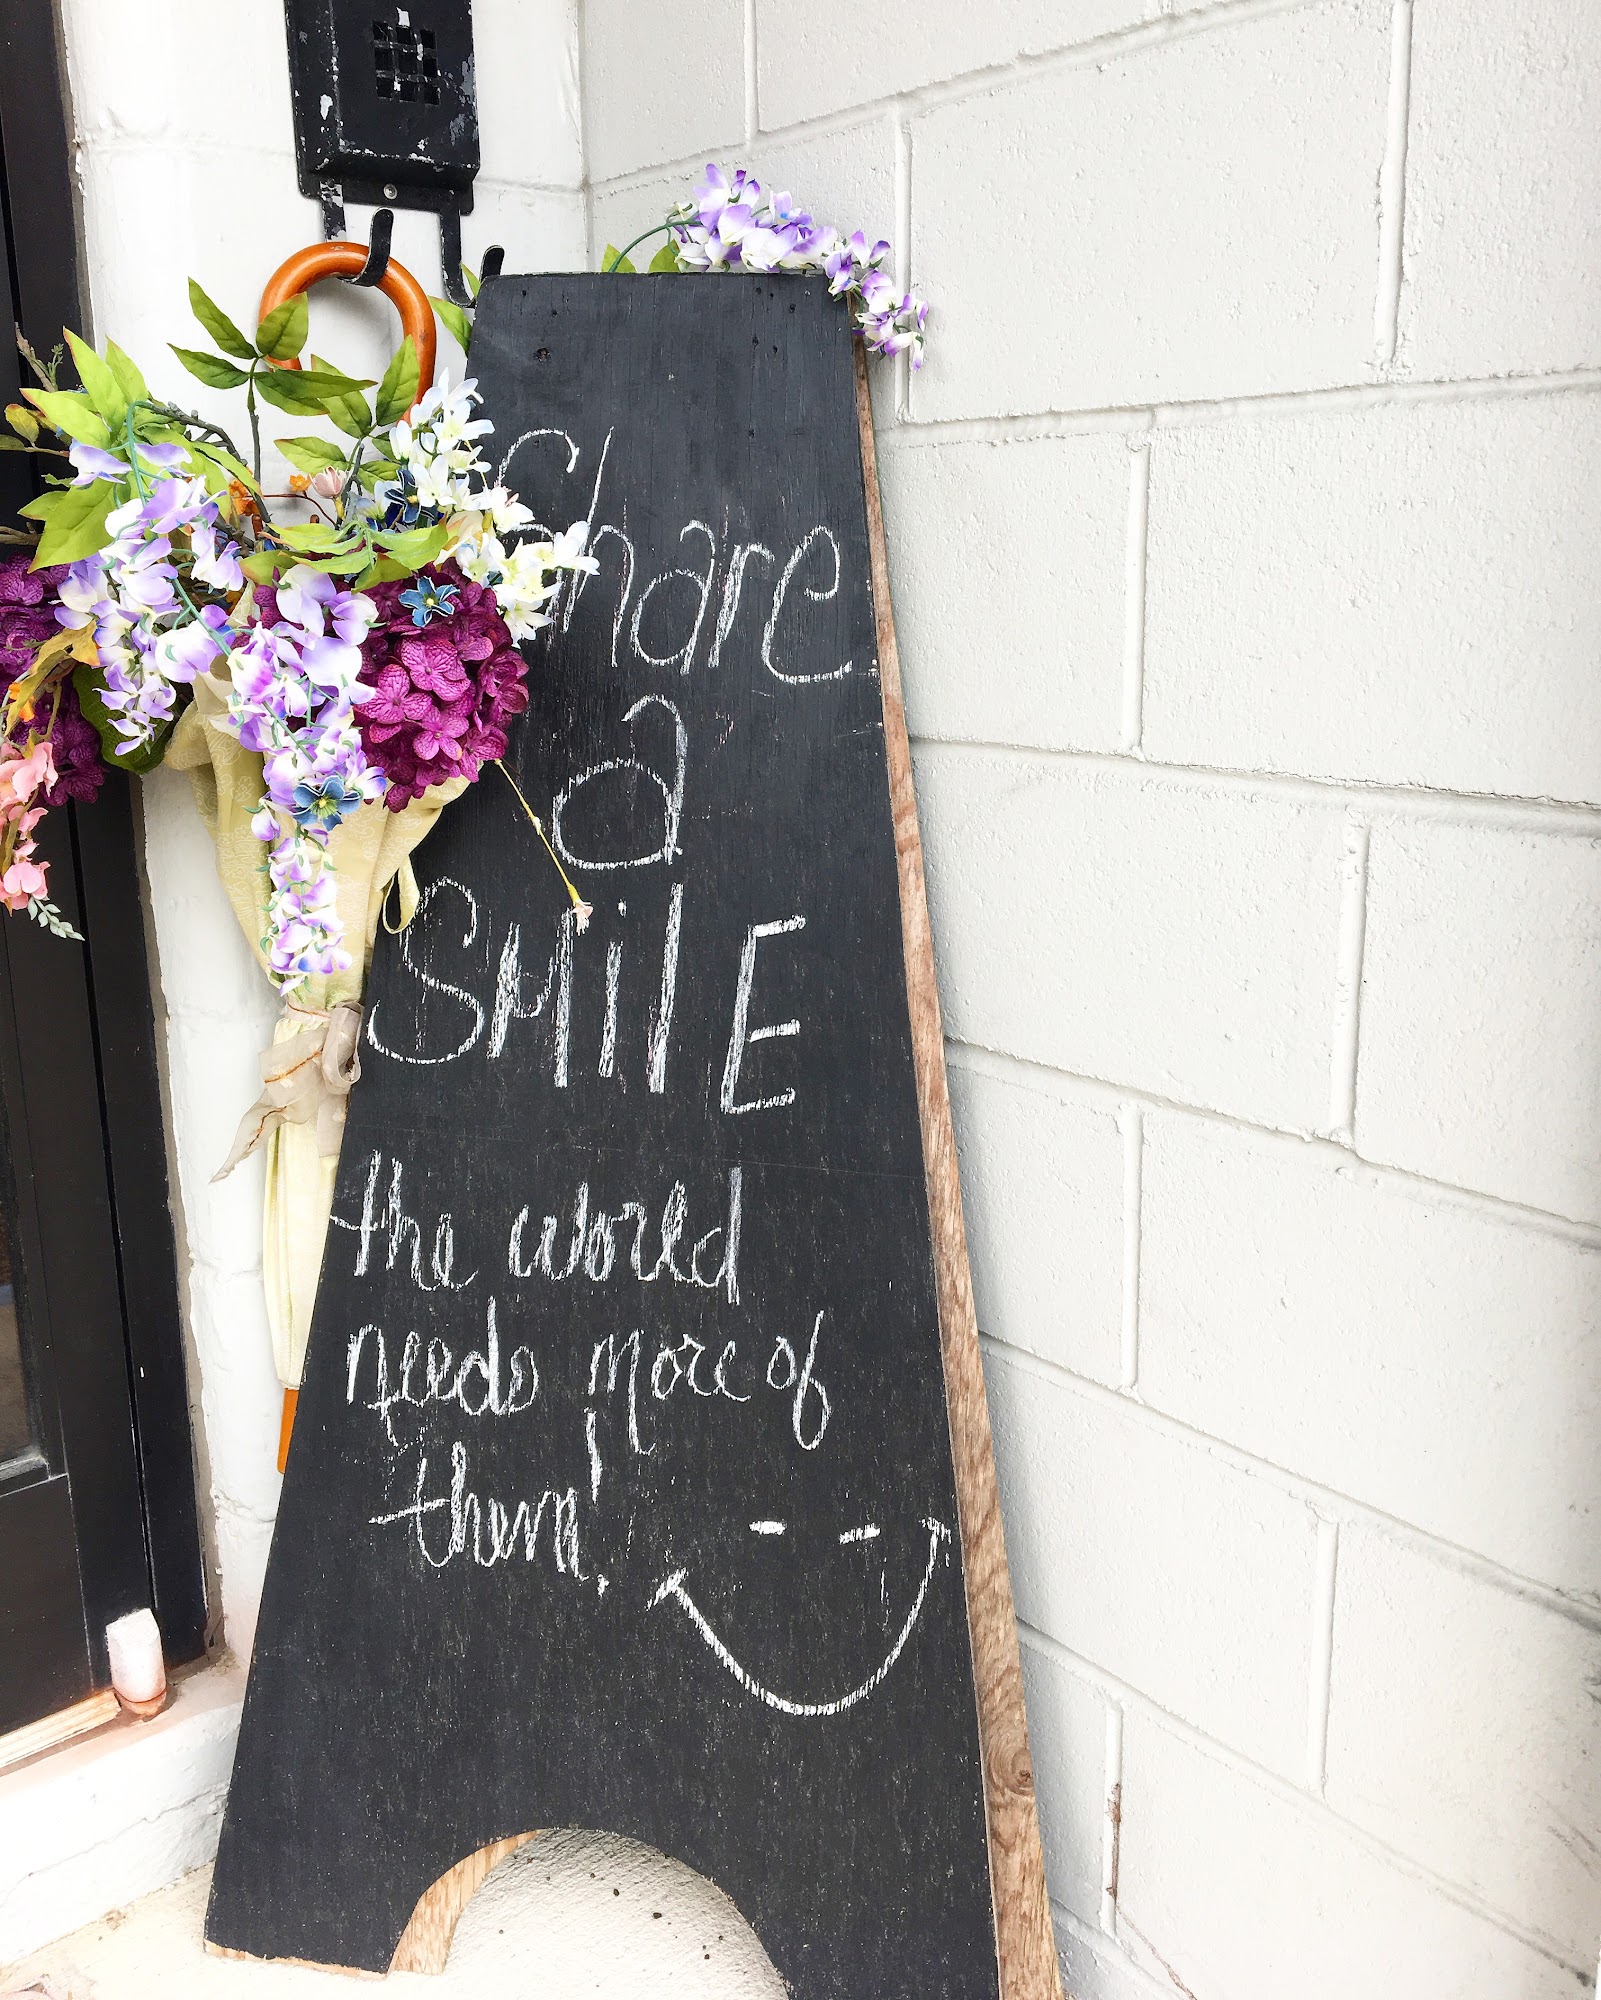 Share
a
SMilE
the world
needs more of
them!